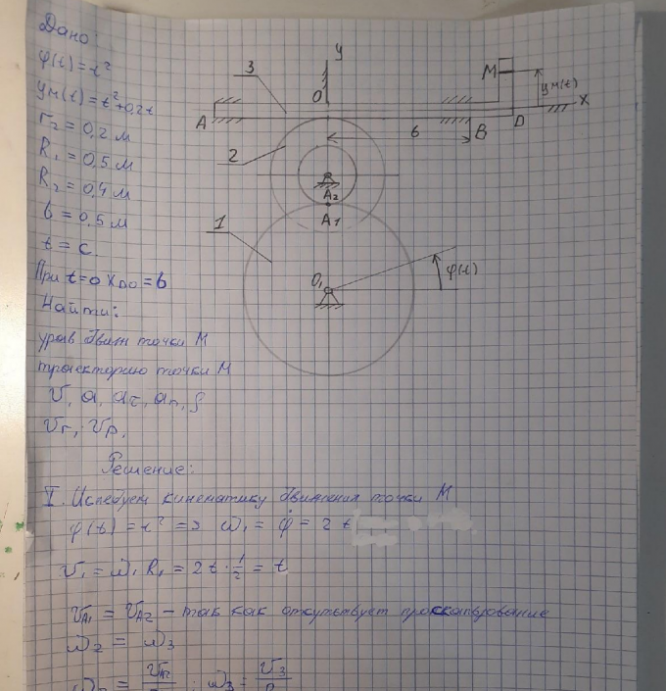 Дано:
φ(t) = t²
yм(t) = t² + 0,2t
r₂ = 0,2 м
R₁ = 0,5 м
R₂ = 0,4 м
b = 0,5 м
t = c.
При t=0 X_D0 = b
Найти:
урав движ точки М
траекторию точки М
V, a, aτ, an, ρ
Vr, Vp,
y
3
O
M
yм(t)
x
A
b
B
D
2
A₂
A1
1
O₁
φ(t)
Решение:
I. Исследуем кинематику движения точки М
φ(t) = t² => ω₁ = φ̇ = 2t
V₁ = ω₁ R₁ = 2t · 1/2 = t
V_A1 = V_A2 – так как отсутствует проскальзывание
ω₂ = ω₃